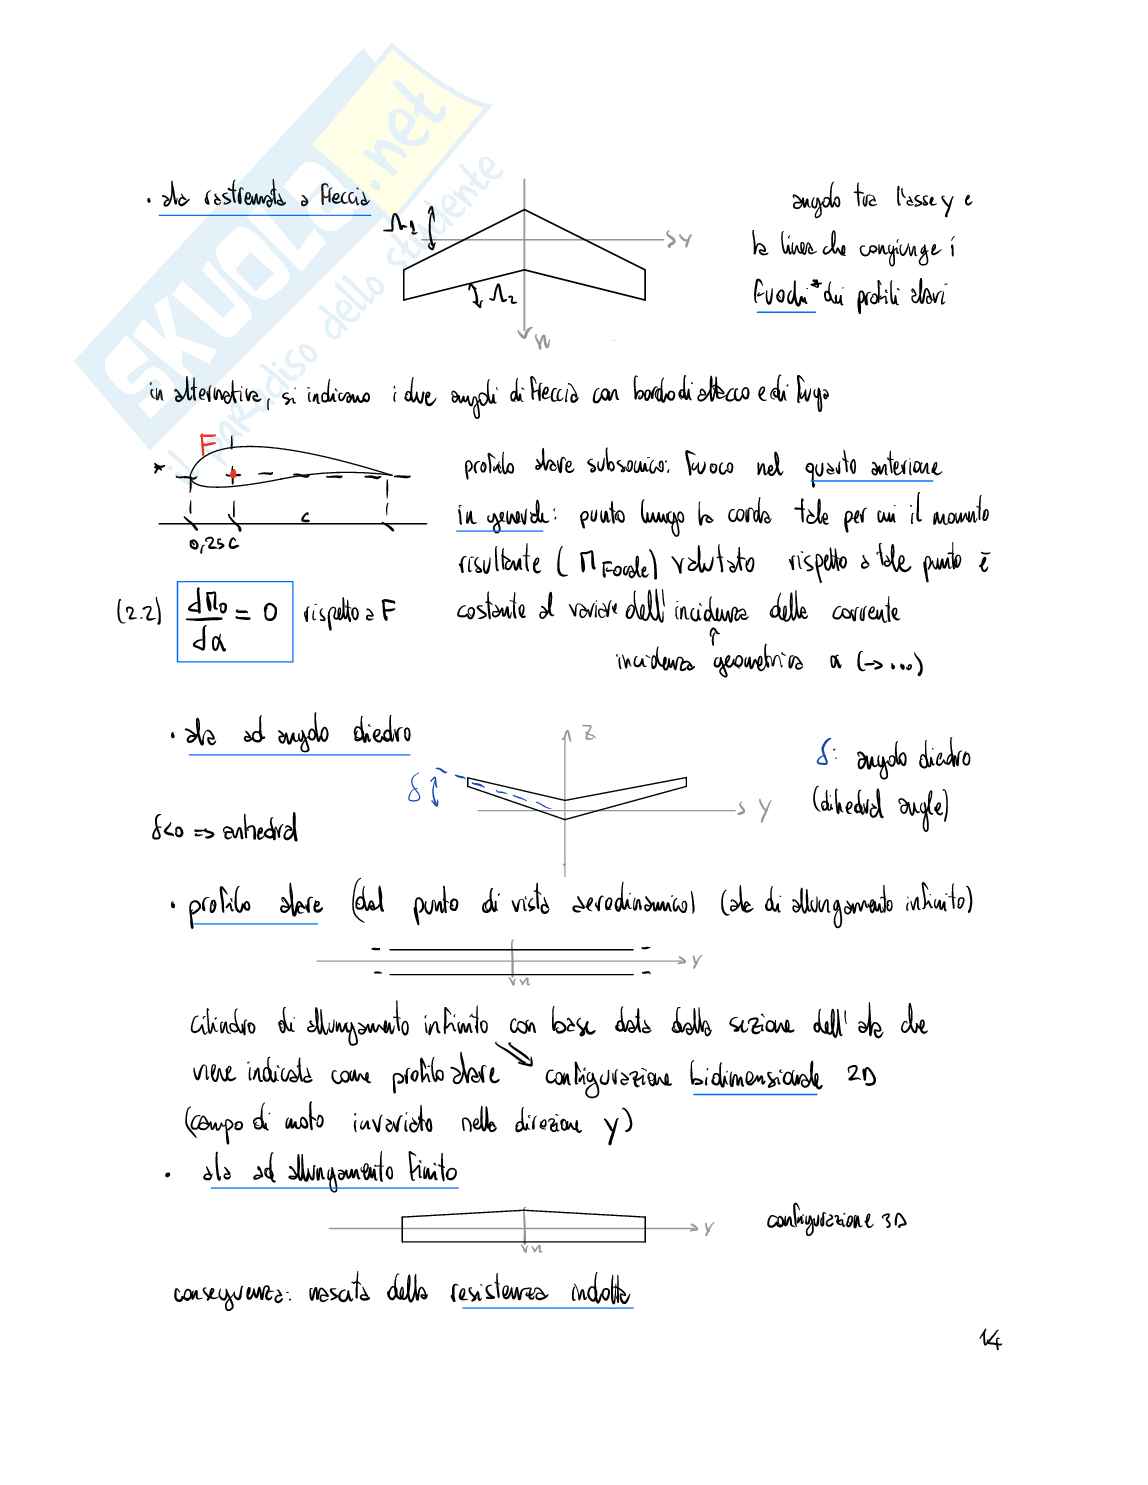 SKUOLA.net
il paradiso dello studente
• ala rastremata a freccia
Λ1
y
Λ2
x
angolo tra l'asse y e
la linea che congiunge i
fuochi* dei profili alari
in alternativa, si indicano i due angoli di freccia con bordo di attacco e di fuga
*
F
0,25c
c
profilo alare subsonico: fuoco nel quarto anteriore
in generale: punto lungo la corda tale per cui il momento
risultante (M Focale) valutato rispetto a tale punto è
costante al variare dell'incidenza della corrente
↑
incidenza geometrica α (→...)
(2.2) dM0/dα = 0 rispetto a F
• ala ad angolo diedro
z
y
δ
δ: angolo diedro
(dihedral angle)
δ<0 => anhedral
• profilo alare (dal punto di vista aerodinamico) (ala di allungamento infinito)
y
x
cilindro di allungamento infinito con base data dalla sezione dell'ala che
viene indicata come profilo alare configurazione bidimensionale 2D
(campo di moto invariato nella direzione y)
• ala ad allungamento finito
y
x
configurazione 3D
conseguenza: nascita della resistenza indotta
14